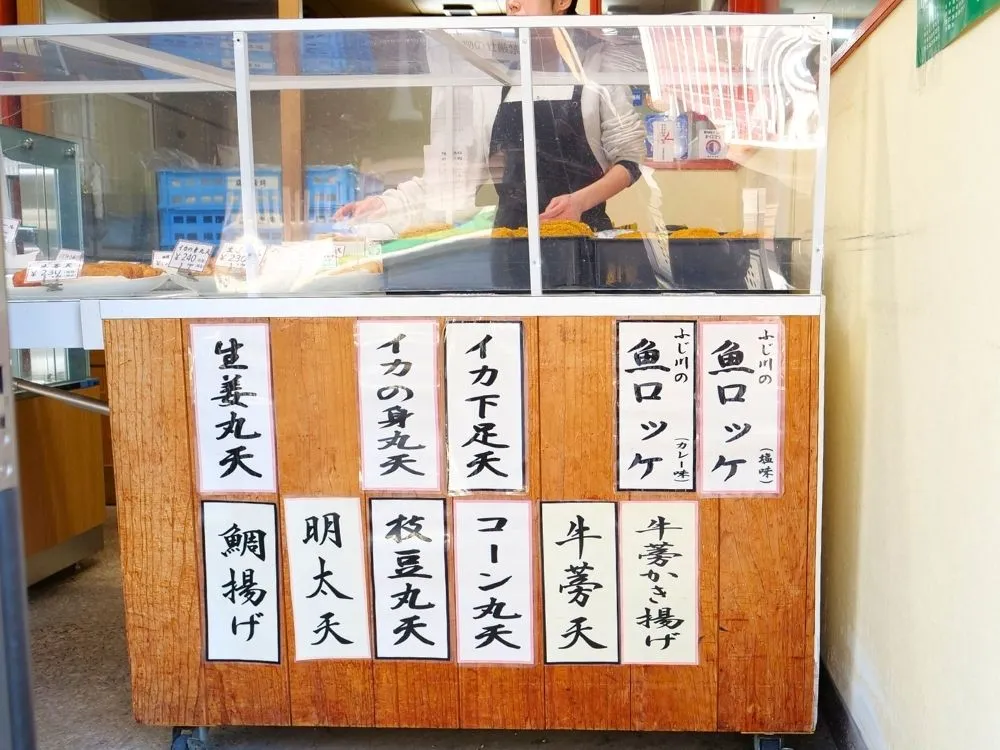 イカの丸天
¥240
¥230
ふじ川の
魚ロッケ
(塩味)
ふじ川の
魚ロッケ
(カレー味)
イカ下足天
イカの身丸天
生姜丸天
牛蒡かき揚げ
牛蒡天
コーン丸天
枝豆丸天
明太天
鯛揚げ